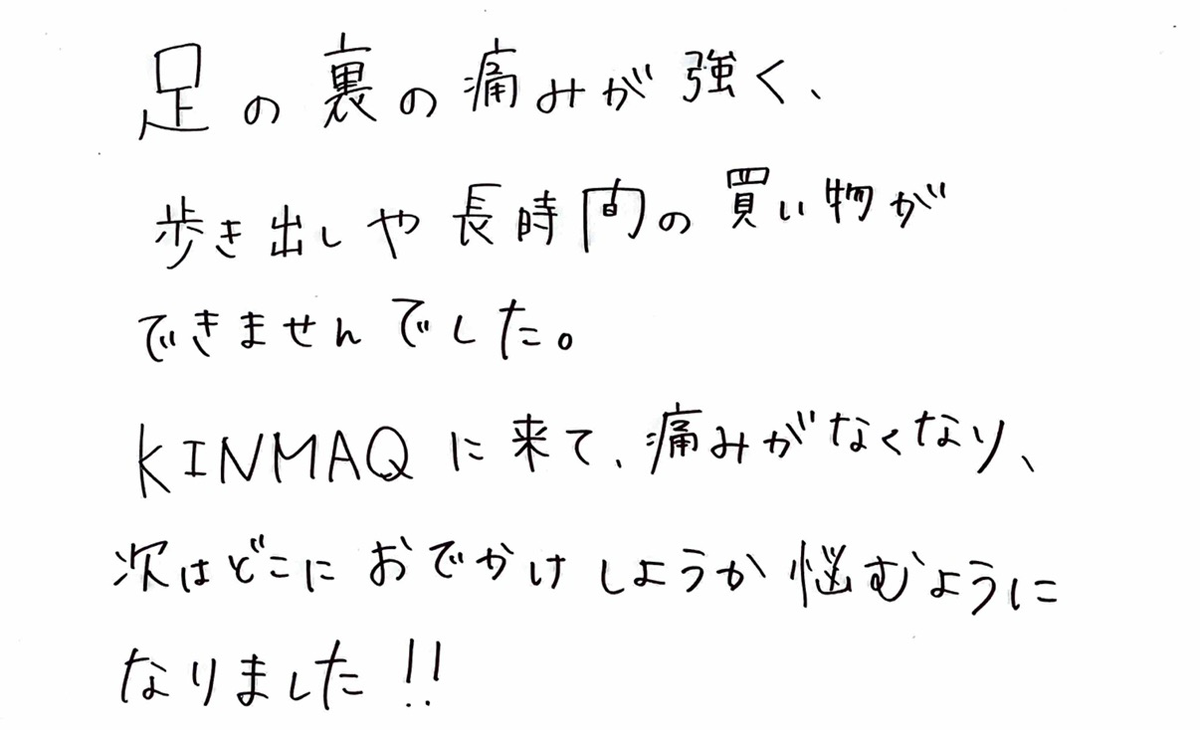 足の裏の痛みが強く、
歩き出しや長時間の買い物が
できませんでした。
KINMAQに来て、痛みがなくなり、
次はどこにおでかけしようか悩むように
なりました!!